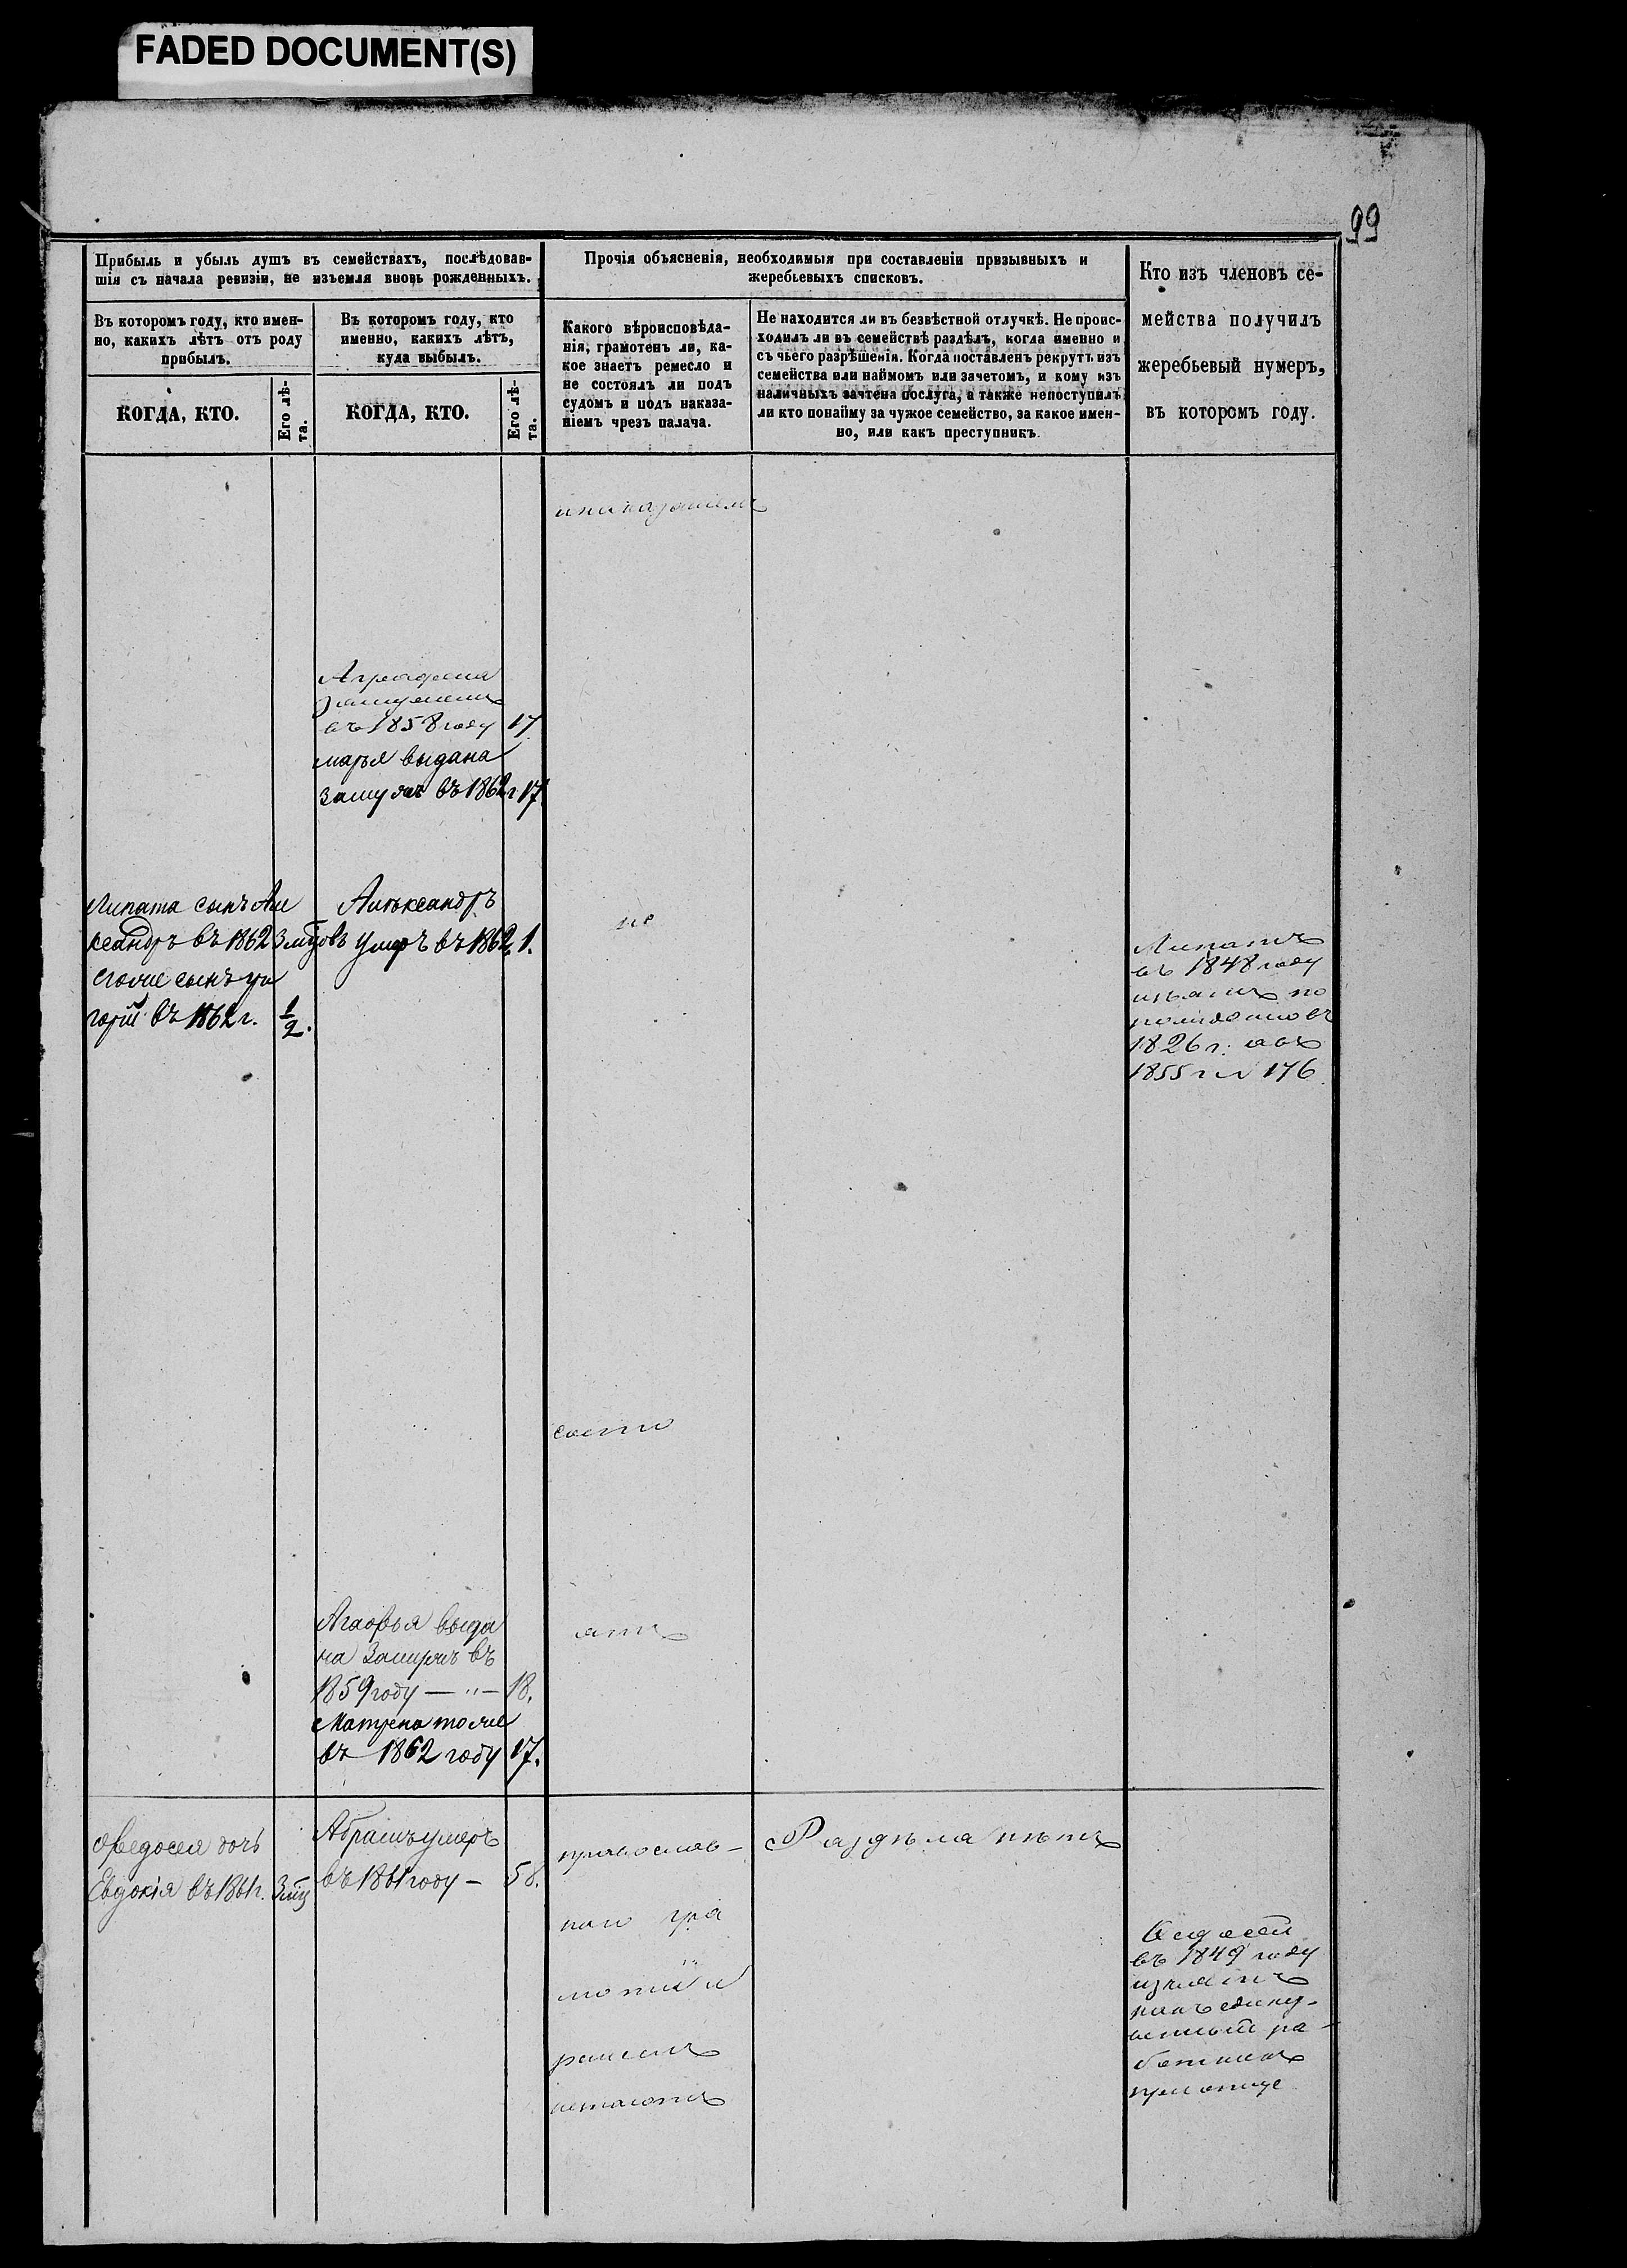 FADED DOCUMENT(S)
99
Прибыль и убыль душъ въ семействахъ, послѣдовав-
шія съ начала ревизіи, не изъемля вновь рожденныхъ.
Прочія объясненія, необходимыя при составленіи призывныхъ и
жеребьевыхъ списковъ.
Кто изъ членовъ се-
мейства получилъ
жеребьевый нумеръ,
въ которомъ году.
Въ которомъ году, кто имен-
но, какихъ лѣтъ отъ роду
прибылъ.
Въ которомъ году, кто
именно, какихъ лѣтъ,
куда выбылъ.
Какого вѣроисповѣда-
нія, грамотенъ ли, ка-
кое знаетъ ремесло и
не состоялъ ли подъ
судомъ и подъ наказа-
ніемъ чрезъ палача.
Не находится ли въ безвѣстной отлучкѣ. Не проис-
ходилъ ли въ семействѣ раздѣлъ, когда именно и
съ чьего разрѣшенія. Когда поставленъ рекрутъ изъ
семейства или наймомъ или зачетомъ, и кому изъ
наличныхъ зачтена послуга, а также непоступилъ
ли кто понайму за чужое семейство, за какое имен-
но, или какъ преступникъ.
КОГДА, КТО.
Его лѣ-
та.
КОГДА, КТО.
Его лѣ-
та.
Аграфена
въ 1858 году 17
марья выдана
замужъ въ 1862 г 17.
Липата сынъ Али
ксандръ въ 1862
сынъ гри
горій въ 1862 г. 1/2.
Алѣксандръ
умеръ въ 1862. 1.
не
Липатъ
въ 1848 году
изъятъ по
1826 г: авъ
1855 г № 176.
состо
Агафья выда
на Замужъ въ
1859 году — " — 18.
Матрена тоже
въ 1862 году 17.
ятъ
Ѳедосея дочь
Евдокія въ 1861 г.
Абрамъ умеръ
въ 1861 году — 58.
православ-
наго гра
мотѣ и
ремеслъ
незнаютъ
Раздѣла нѣтъ
Ѳедосей
въ 1849 году
изъятъ
какъ едину-
венный ра-
ботникъ
при отцѣ